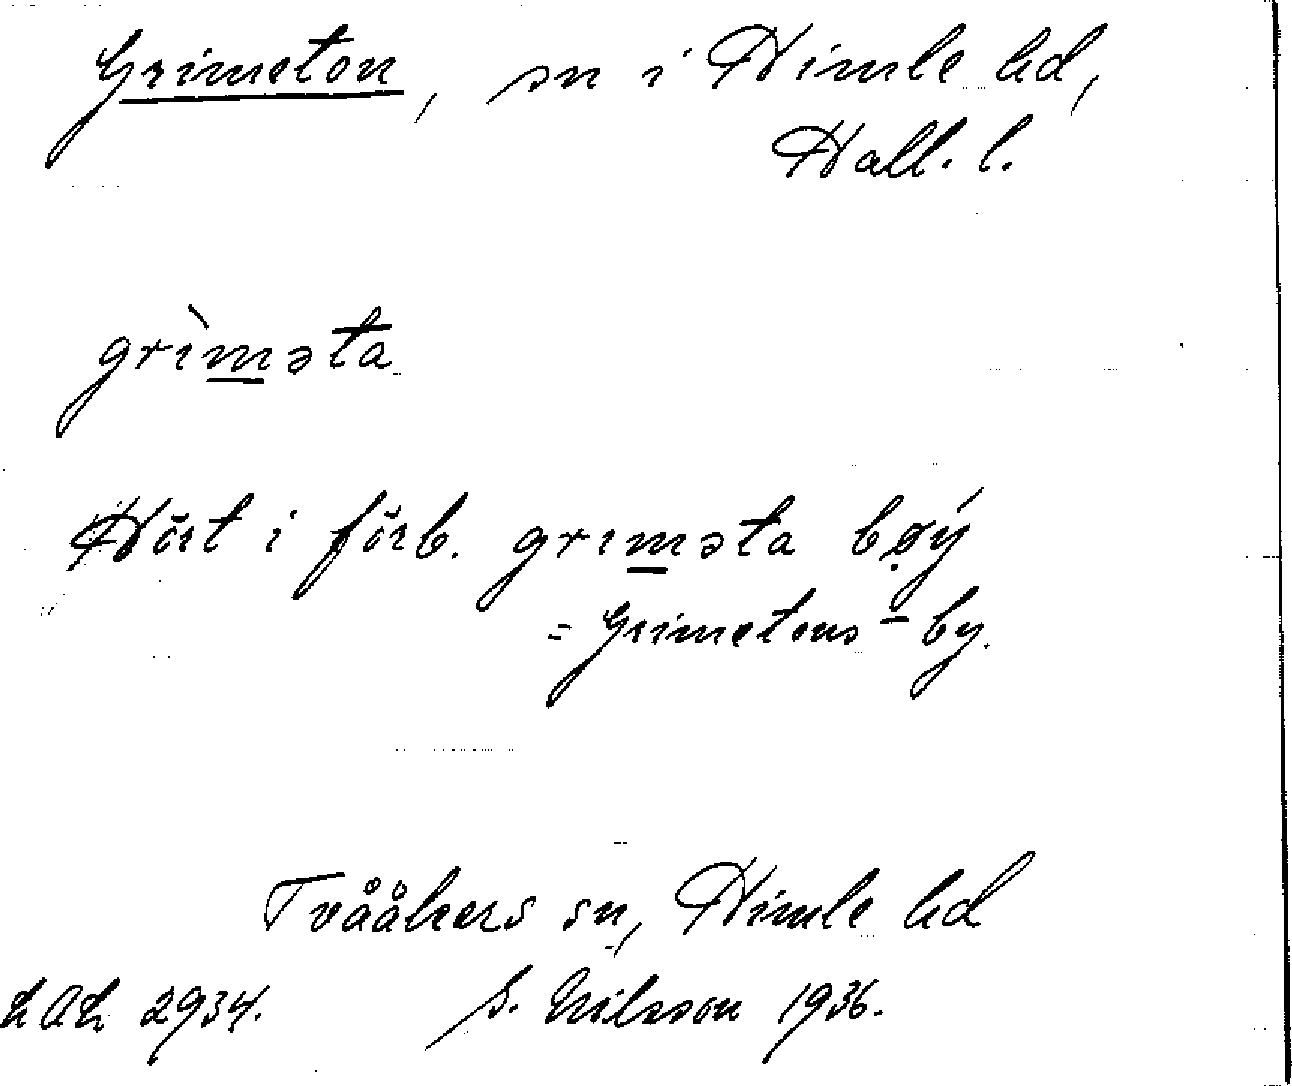 Grimeton, sn i Himle hd,
Hall. l.
grìməta
Hört i förb. griməta bøý
= Grimetons-by.
Tvååkers sn, Himle hd
LAL 2934. S. Nilsson 1936.